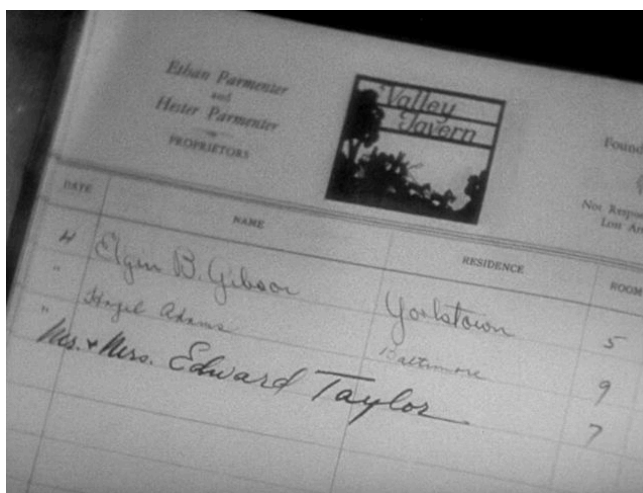 Ethan Parmenter
and
Hester Parmenter
PROPRIETORS
Valley
Tavern
Found
Not Resp
Lost Ar
DATE NAME RESIDENCE ROOM
4 Elgin B. Gibson Yorktown 5
" Hazel Adams Baltimore 9
" Mr. & Mrs. Edward Taylor 7